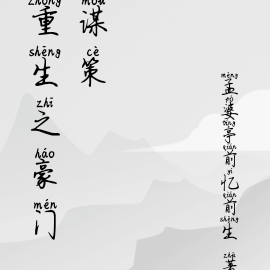 重 shēng 生 zhī 之 háo 豪 mén 门
谋 cè 策
mèng 孟 pó 婆 tíng 亭 qián 前 yì 忆 qián 前 shēng 生